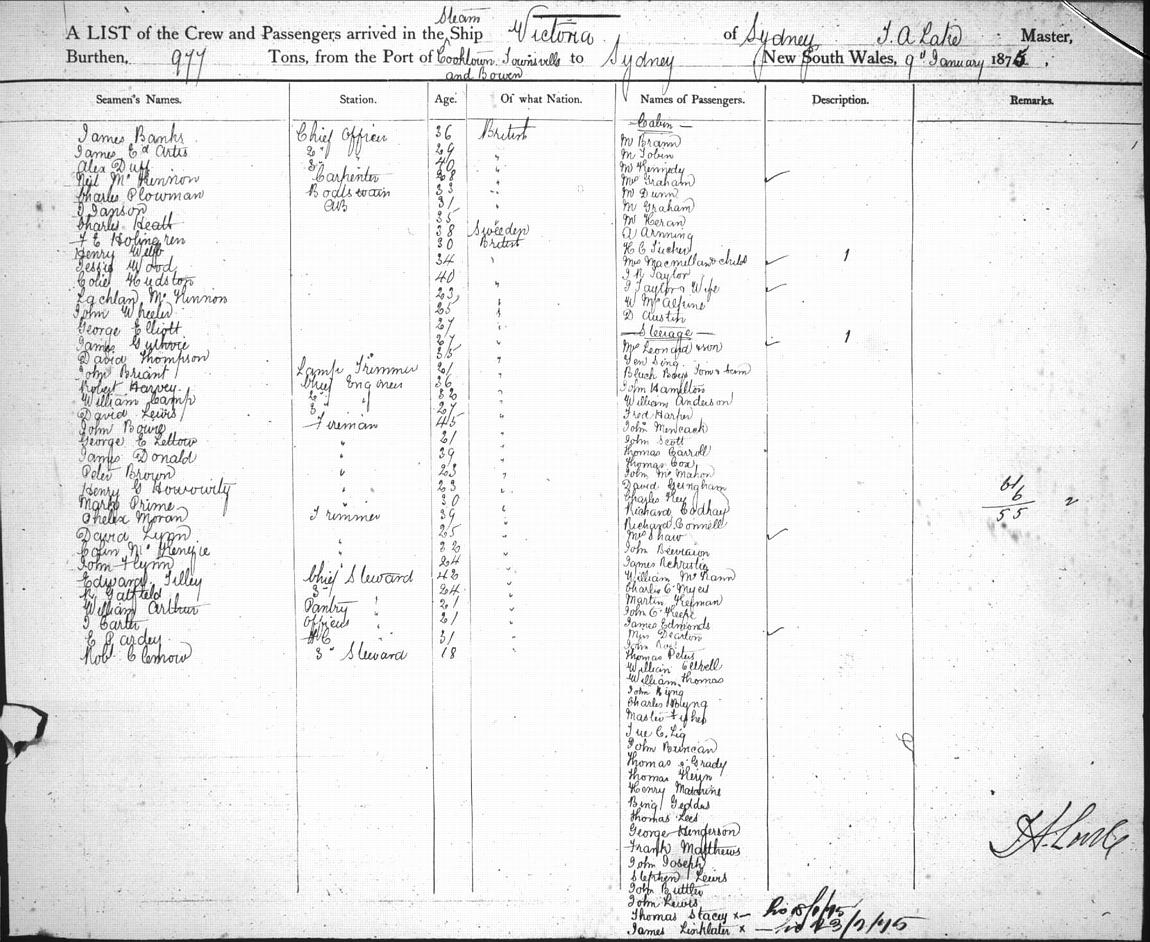 Steam
A LIST of the Crew and Passengers arrived in the Ship Victoria of Sydney T. A Lake Master,
Burthen, 977 Tons, from the Port of Cooktown. Townsville to Sydney New South Wales, 9th January 1875.
and Bowen
Seamen's Names. Station. Age. Of what Nation. Names of Passengers. Description. Remarks.
James Banks Chief Officer 36 British
James Ed Artis 2d " 29 "
Alex Duff 3d " 40 "
Neil McKinnon Carpenter 28 "
Charles Plowman Boatswain 33 "
J Janson AB 31 "
Charles Heath 35
F E Holmgren 38 Sweeden
Henry Webb 30 British
Jessie Wood 34 "
Colie Hudston 40 "
Lachlan McKinnon 23 "
John Wheeler 25 "
George Elliott 27 "
James Guthrie 27 "
David Thompson 35 "
John Briant Lamp Trimmer 21 "
Robert Harvey Chief Engineer 36 "
William Camp 2d " 32 "
David Lewis 3d " 27 "
John Bowie Fireman 45 "
George E Lettow " 21 "
James Donald " 39 "
Peter Brown " 23 "
Henry G Horowitz " 23 "
Marks Prime " 30 "
Moran Trimmer 39 "
David Lynn " 25 "
Colin McKenzie " 22 "
John Flynn " 24 "
Edward Tilley Chief Steward 42 "
R Gatfield 2d " 24 "
William Arthur Pantry " 21 "
J Carter Officers " 21 "
E Pardey 31 "
Robt Clemow 3d Steward 18 "
Cabin
Mr Brann
Mr Tobin
Mr Kennedy
Mrs Graham
Mr Dunn
Mr Graham
Mr Keran
A Arnning
H C Tucker
Mrs Macmillan & child 1
J R Taylor
J Taylor & Wife
W McAlpine
D Austin
Steerage 1
Mrs Leonard & son
Yen Sing
Black Boys Tom & Sam
John Hamilton
William Anderson
Fred Harper
John
John Scott
Thomas Carroll
Thomas Cox
John McMahon
David Gengham
Charles Hey
Richard
Richard Connell
Mrs Shaw
John
James
William McKann
Charles C Myers
Martin
John C Keefe
James Edmonds
Miss Dearton
John
Thomas Peters
William Ellwell
William Thomas
John Kyng
Charles Byng
Master Fisher
Tue C. Lig
John Duncan
Thomas O'Grady
Thomas
Henry
Bing Geddes
Thomas Lees
George Henderson
Frank Matthews
John Joseph
Stephen Lewis
John Buttler
John Lewis
Thomas Stacey x
James Linklater x 23/2/75
61
6
55 2
T.A. Lake